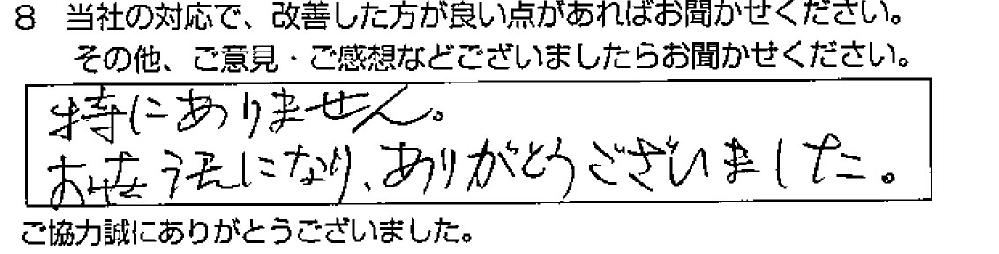 8 当社の対応で、改善した方が良い点があればお聞かせください。
その他、ご意見・ご感想などございましたらお聞かせください。
特にありません。
お世話になり、ありがとうございました。
ご協力誠にありがとうございました。